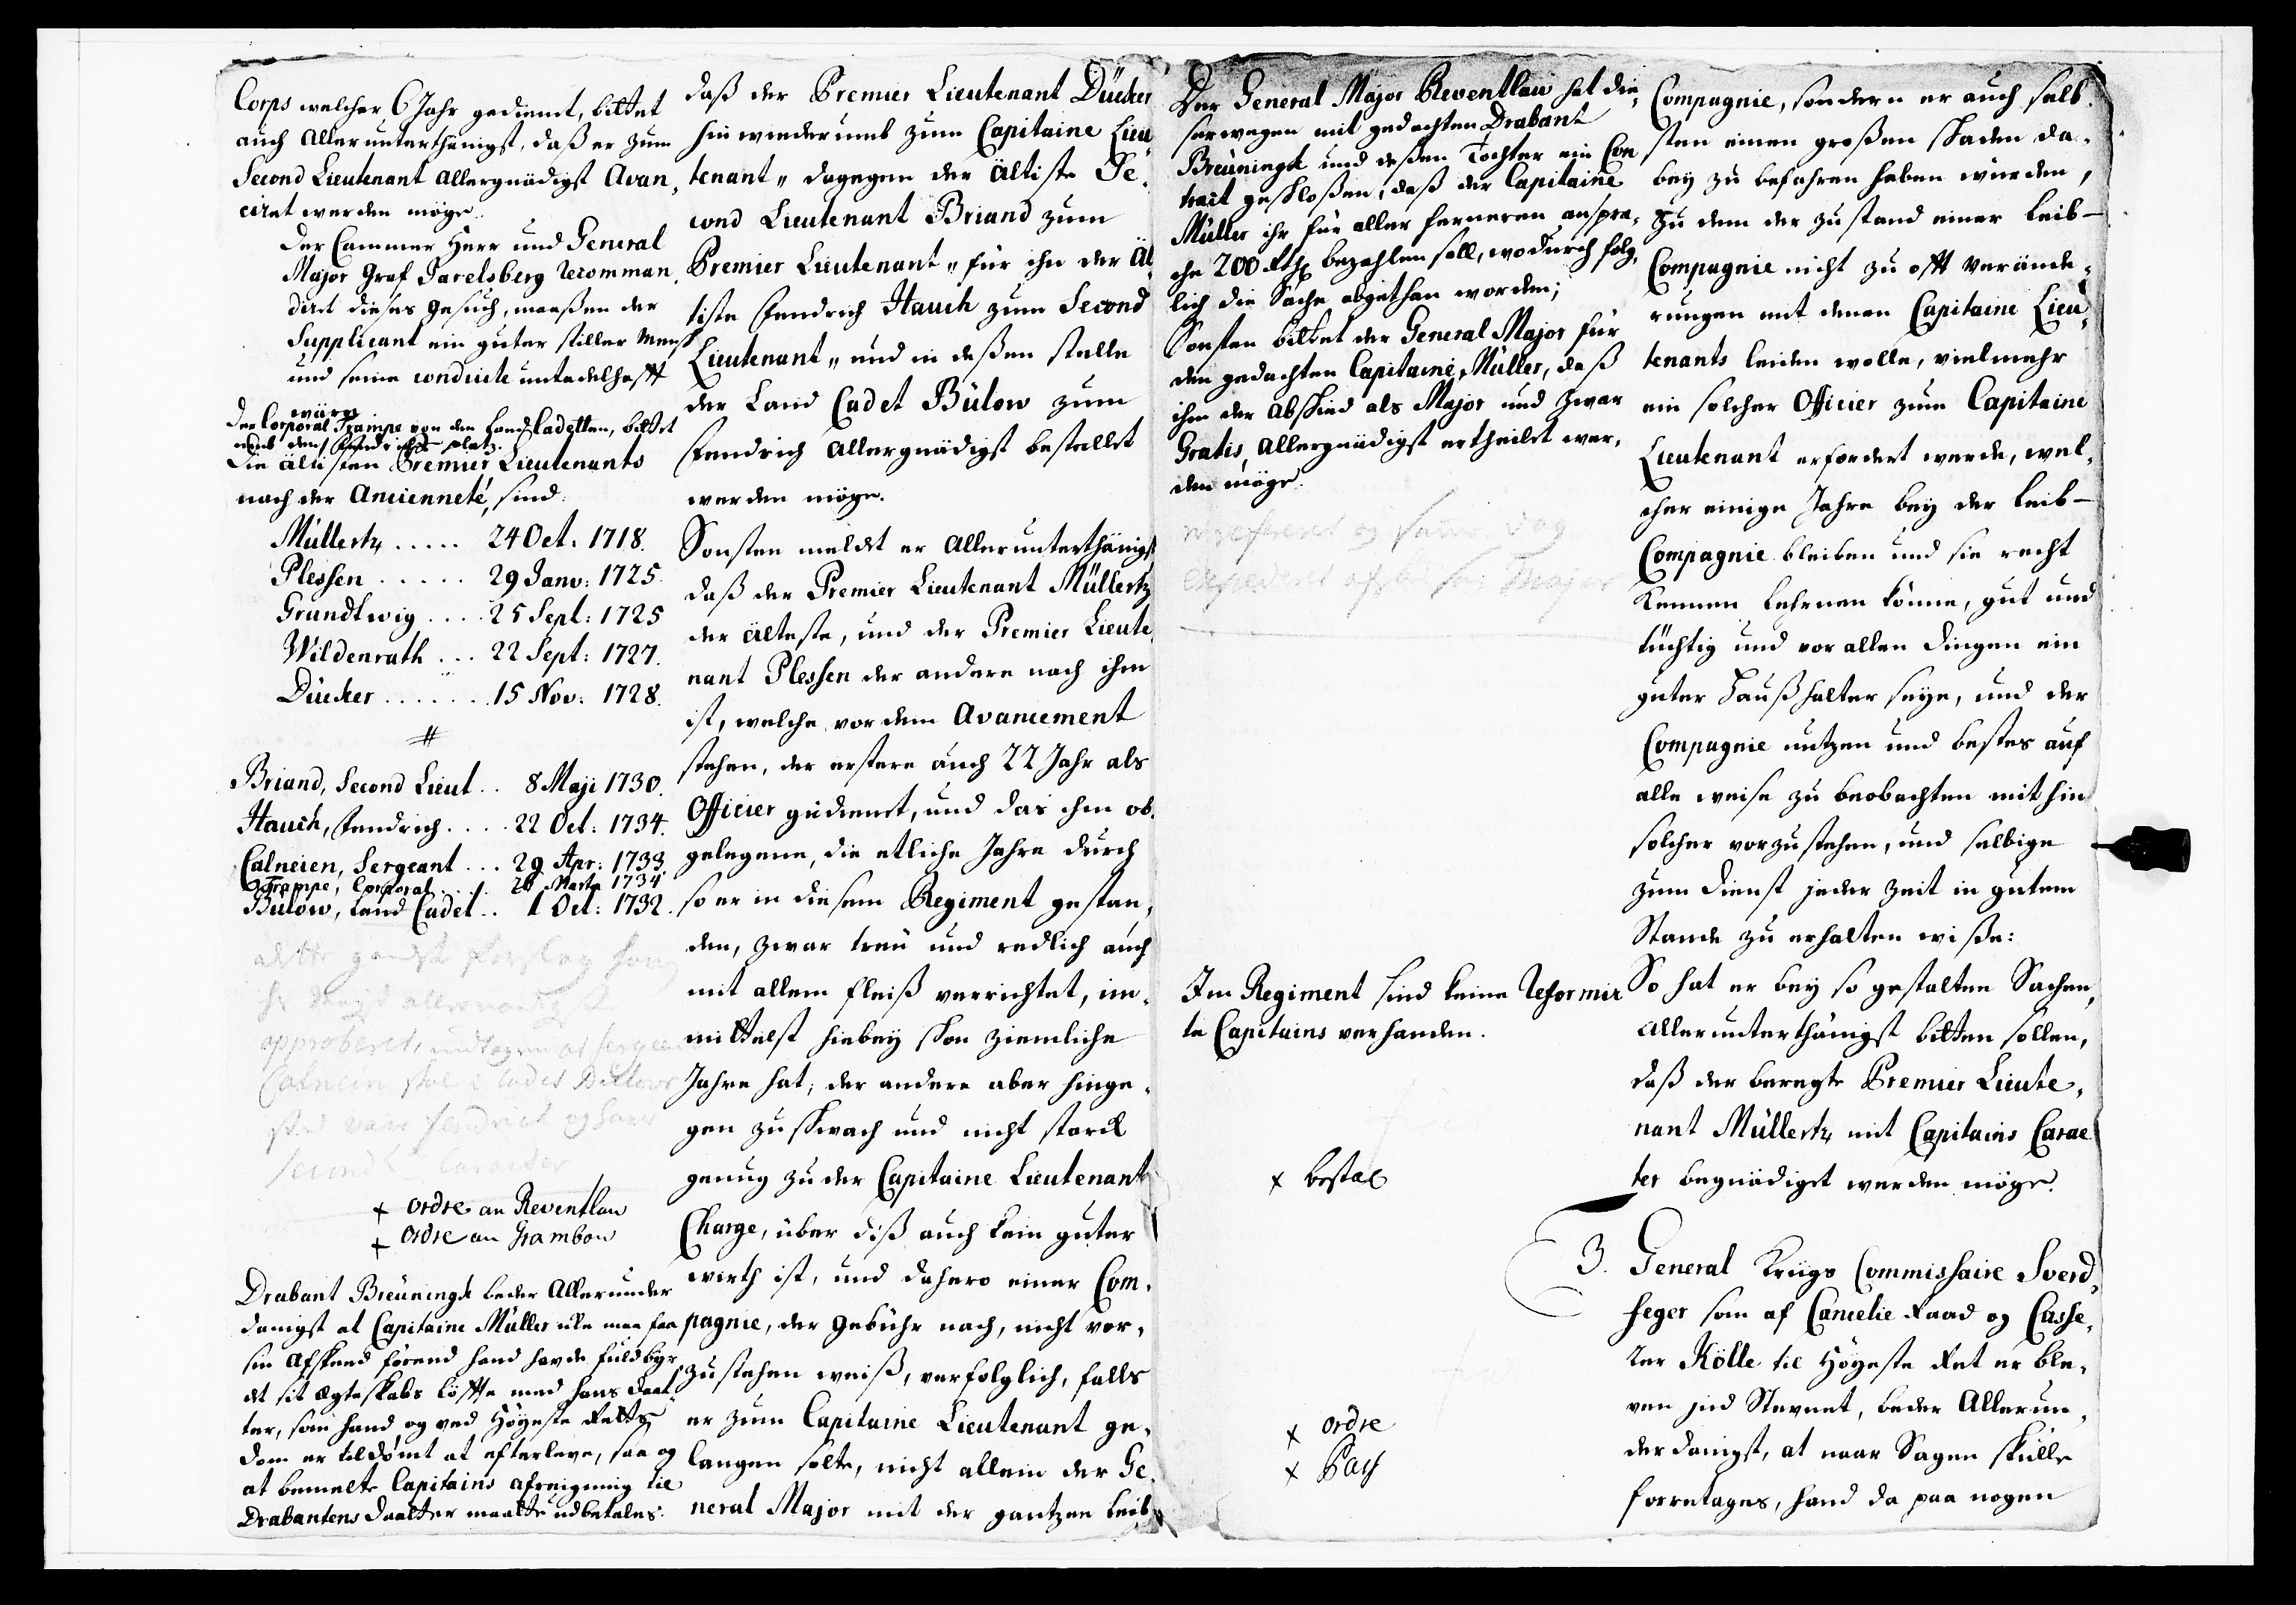 Corps welcher 6 Jahr gedient, bittet
auch Allerunterthänigst, daß er zum
Second Lieutenant Allergnädigst Avan,
ciret werden möge.
Der Cammer Herr und General
Major Graf recomman,
diret dieses Gesuch, maaßen der
Supplicant ein guter stiller Mensch
und seine conduite untadelhafft
wäre
Der Corporal Trampe von den Land Cadetten, bittet
umb den Fendrichs platz.
Die ältisten Premier Lieutenants
nach der Ancienneté, sind
Müllertz ..... 24 Oct: 1718.
Plessen ..... 29 Janv: 1725.
Grundtwig .... 25 Sept: 1725
Wildenrath ... 22 Sept: 1727.
Dücker ....... 15 Nov: 1728.
#
Briand, Second Lieut .. 8 Maji 1730.
Hauch, Fendrich .... 22 Oct: 1734.
Calneien, Sergeant ... 29 Apr: 1733.
Trampe, Corporal .... Martz 1734
Bülow, Land Cadet .. 1 Oct: 1732.
approberet, undtagen at
Calneien skal
Fendrich og
Second Caracter
+ ordre an Reventlau
+ ordre an Grambow
Drabant Breüningk beder Allerunder
danigst at Capitaine Müller icke maa faa
sin Afskeed førend hand havde fuldbyr,
det sit Ægteskabs løffte med hans Daat,
ter, som hand og ved Høyeste Retts
Dom er tildømt at efterleve, saa og
at bemelte Capitains afreigning til
Drabantens Daatter maatte udbetales.
daß der Premier Lieutenant Dücker
hinwiederumb zum Capitaine Lieu,
tenant " dagegen der Ältiste Se,
cond Lieutenant Briand zum
Premier Lieutenant " für ihn der Äl,
tiste Fendrich Hauch zum Second
Lieutenant " und in deßen stelle
der Land Cadet Bülow zum
Fendrich Allergnädigst bestellet
werden möge.
Sonsten meldet er Allerunterthänigst
daß der Premier Lieutenant Müllertz
der älteste, und der Premier Lieute,
nant Plessen der andere nach ihm
ist, welche vor dem Avancement
stehen, der erstere auch 22 Jahr als
Officier gedienet, und das ihm ob,
gelegene, die etliche Jahre durch
so er in diesem Regiment gestan,
den, zwar treu und redlich auch
mit allem Fleiß verrichtet, im,
mittelst hiebey schon ziemliche
Jahre hat, der andere aber hinge,
gen zu schwach und nicht starck
genug zu der Capitaine Lieutenant
Charge, über diß auch kein guter
wirth ist, und dahero einer Com,
pagnie, der Gebühr nach, nicht vor,
zustehen weiß, verfolglich, falls
er zum Capitaine Lieutenant ge,
langen solte, nicht allein der Ge,
neral Major mit der gantzen Leib
Der General Major Reventlau hat die,
serwegen mit gedachten Drabant
Breüningk und deßen Tochter ein Con
tract geschloßen, daß der Capitaine
Müller ihr für aller ferneren anspra,
che 200 Rthl bezahlen soll, wodurch folg,
lich die Sache abgethan worden;
Sonsten bittet der General Major für
den gedachten Capitaine Müller, daß
ihm der Abschied als Major und zwar
Gratis, Allergnädigst ertheilet wer,
den möge.
Im Regiment sind keine Reformir
te Capitains verhanden.
+ bestal
+ ordre
+ Pass
Compagnie, sondern er auch selb,
sten einen großen schaden da,
bey zu befahren haben würden,
Zu dem der zustand einer Leib-
Compagnie nicht zu offt verände,
rungen mit denen Capitaine Lieu,
tenants leiden wolle, vielmehr
ein solcher Officier zum Capitaine
Lieutenant erfordert werde, wel,
cher einige Jahre bey der Leib-
Compagnie bleiben und sie recht
kennen lehrnen könne, gut und
tüchtig und vor allen dingen ein
guter Haußhalter seye, und der
Compagnie nutzen und bestes auf
alle weise zu beobachten mithin
solcher vorzustehen, und selbige
zum Dienst jeder zeit in gutem
Stande zu erhalten wiße:
So hat er bey so gestalten Sachen,
Allerunterthänigst bitten sollen,
daß der beregte Premier Lieute,
nant Müllertz mit Capitains Carac
ter begnädiget werden möge.
3. General Krigs Commissaire Sverd,
feger som af Cancelie Raad og Casse,
rer Kölle til Høyeste Ret er ble,
ven ind Stevnet, beder Allerun,
derdanigst, at naar Sagen skulle
forretages, hand da paa nogen